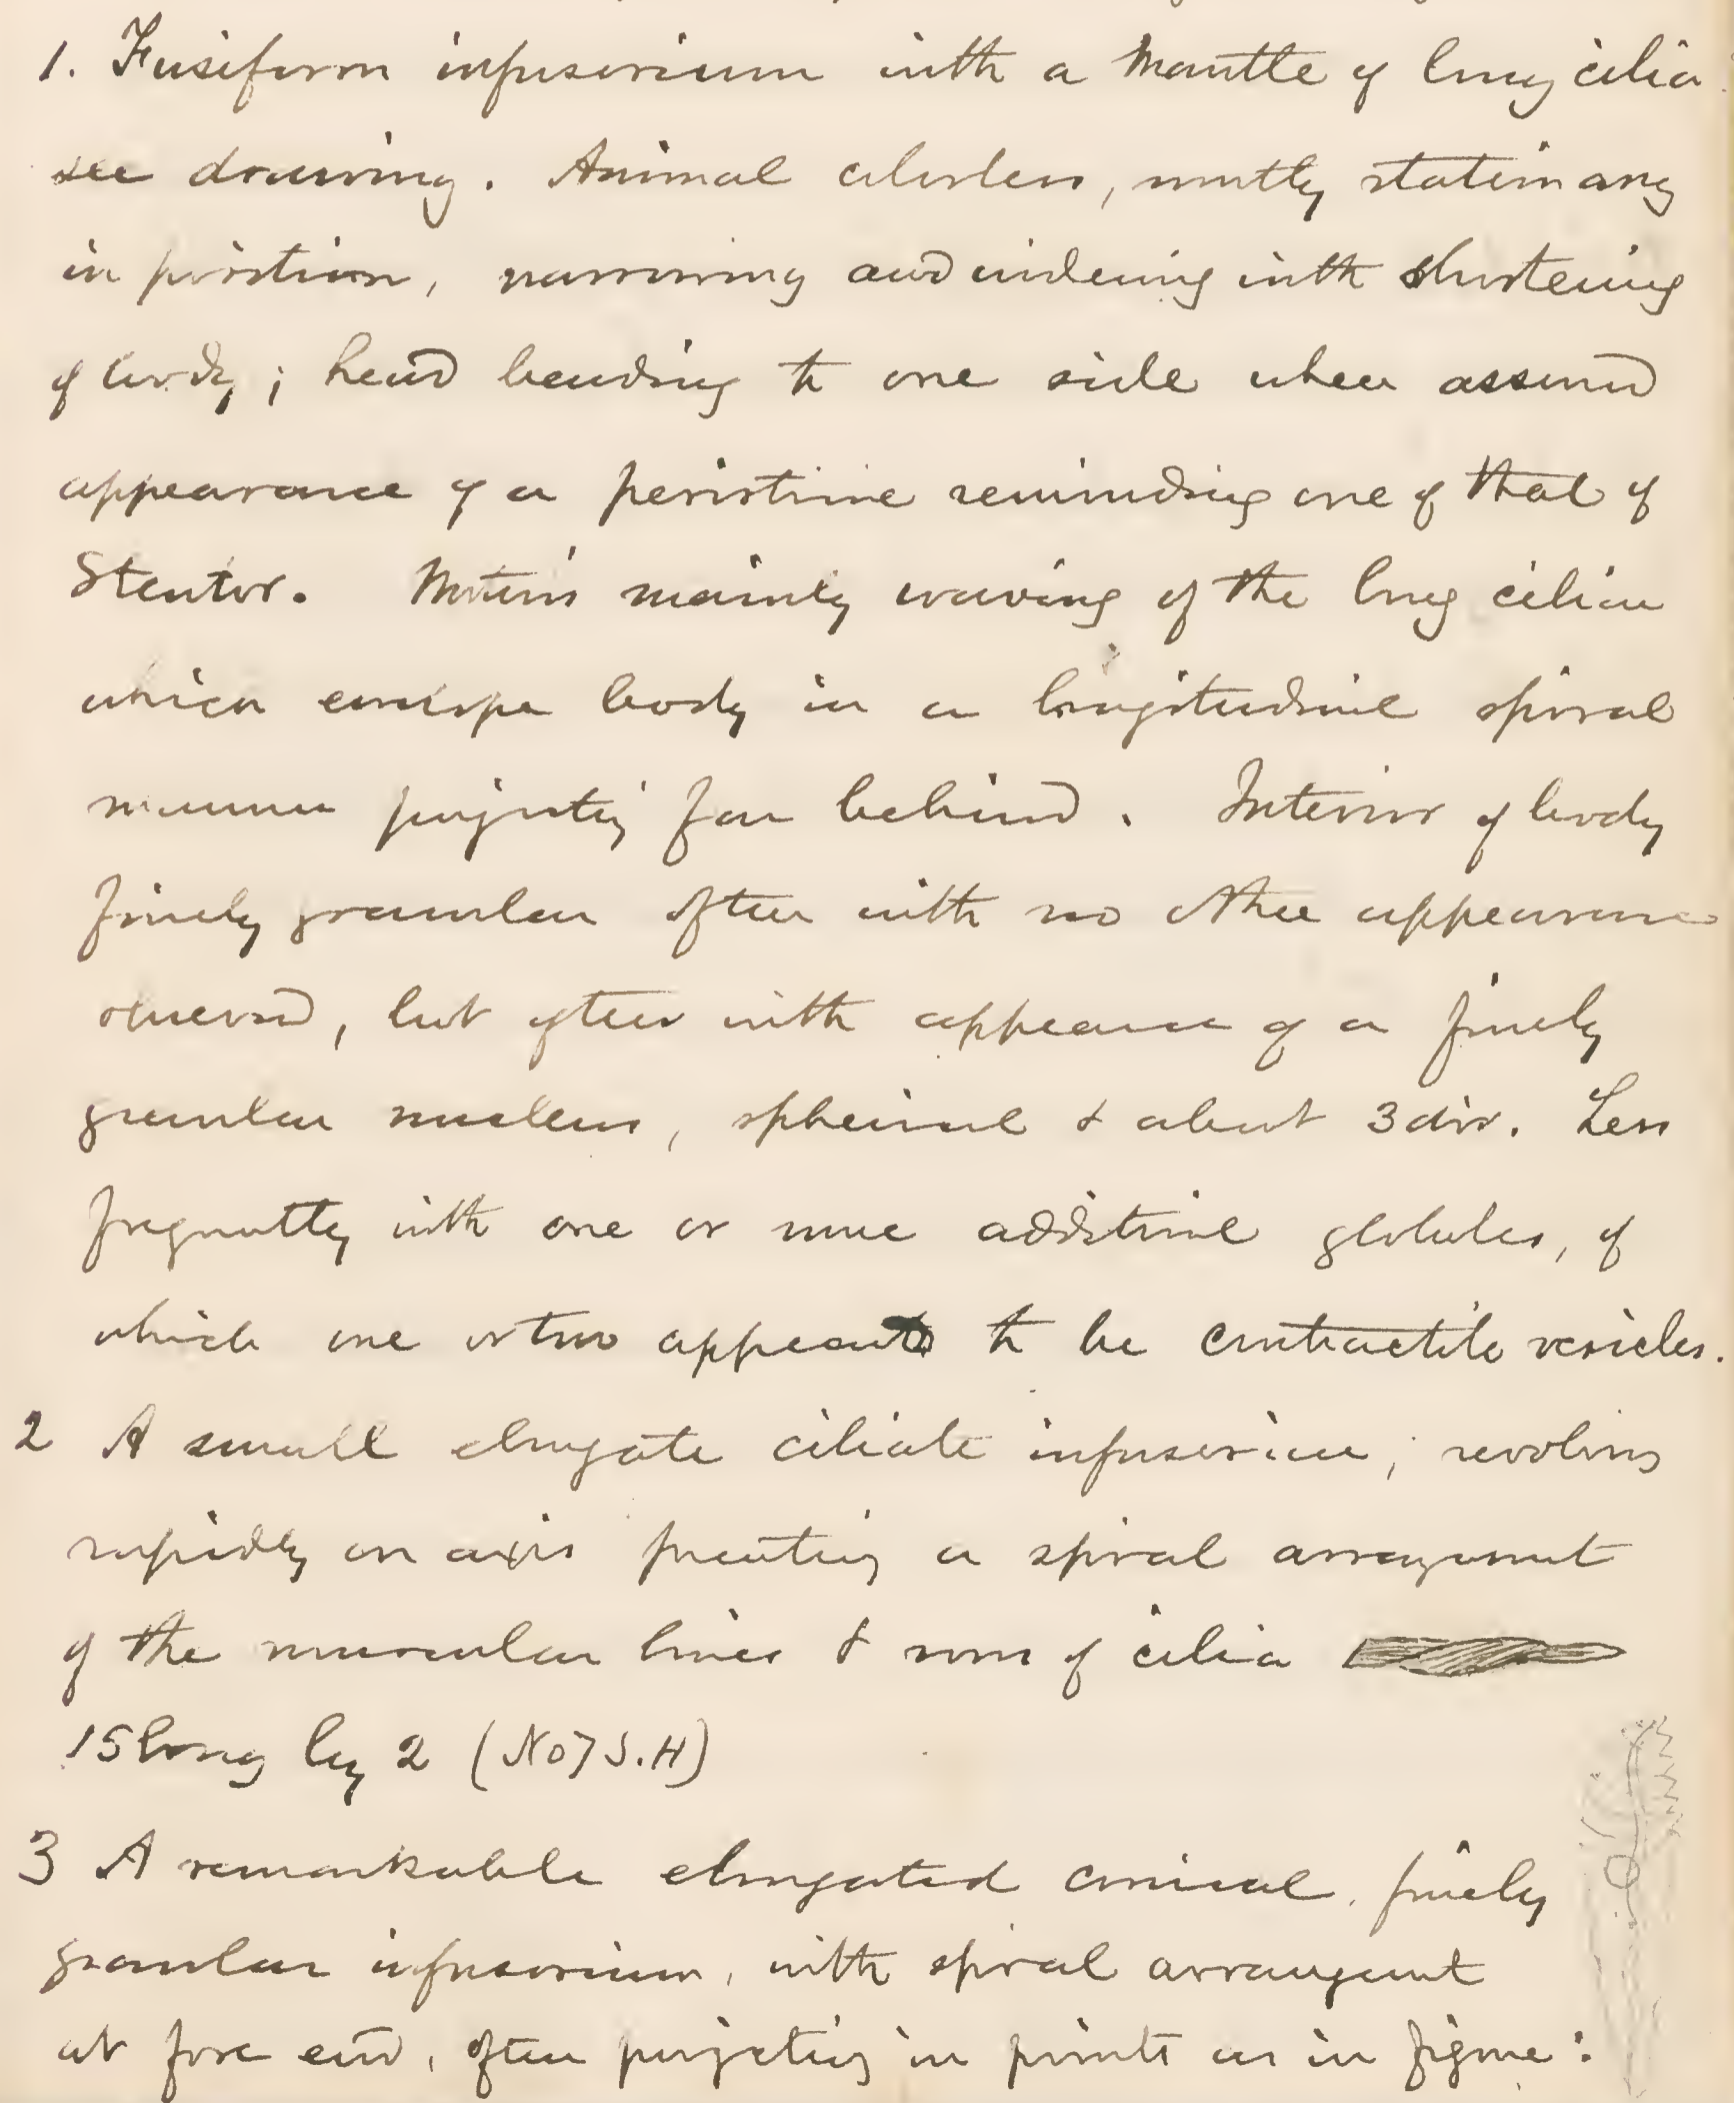 1. Fusiform infusorium with a mantle of long cilia
see drawing. Animal colorless, mostly stationary
in position, narrowing and widening with shortening
of body; head bending to one side when assumed
appearance of a peristome reminding one of that of
Stentor. Motions mainly waving of the long cilia
which envelope body in a longitudinal spiral
manner projecting far behind. Interior of body
finely granular often with no other appearance
observed, but often with appearance of a finely
granular nucleus, spherical & about 3 div. Less
frequently with one or more additional globules, of
which one or two appear to be contractile vesicles.
2 A small elongate ciliate infusorium, revolving
rapidly on axis presenting a spiral arrangement
of the muscular lines & rows of cilia
15 long by 2 (No 7 S.H)
3 A remarkable elongated conical, finely
granular infusorium, with spiral arrangement
at fore end, often projecting in points as in figure: